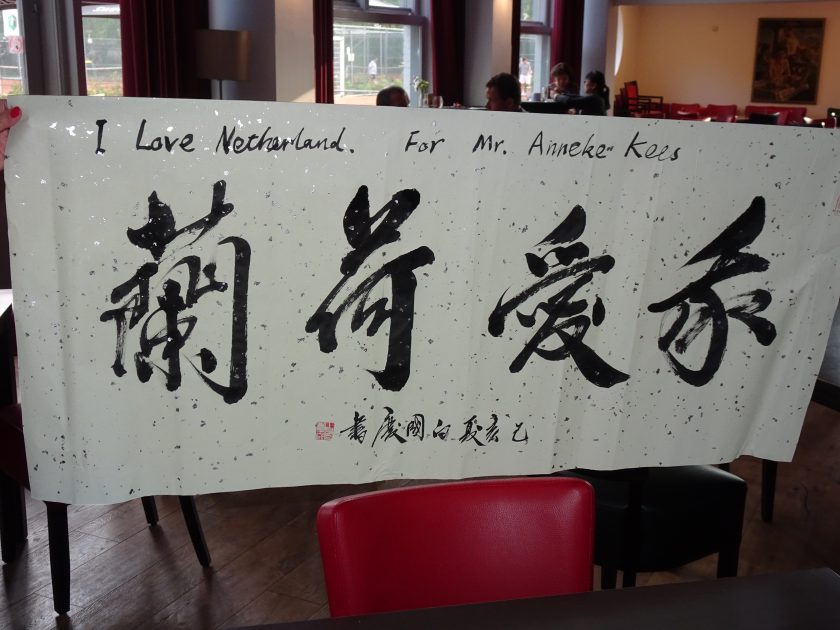 I Love Netherland. For Mr. Anneke Kees
我愛荷蘭
己亥夏白國慶書